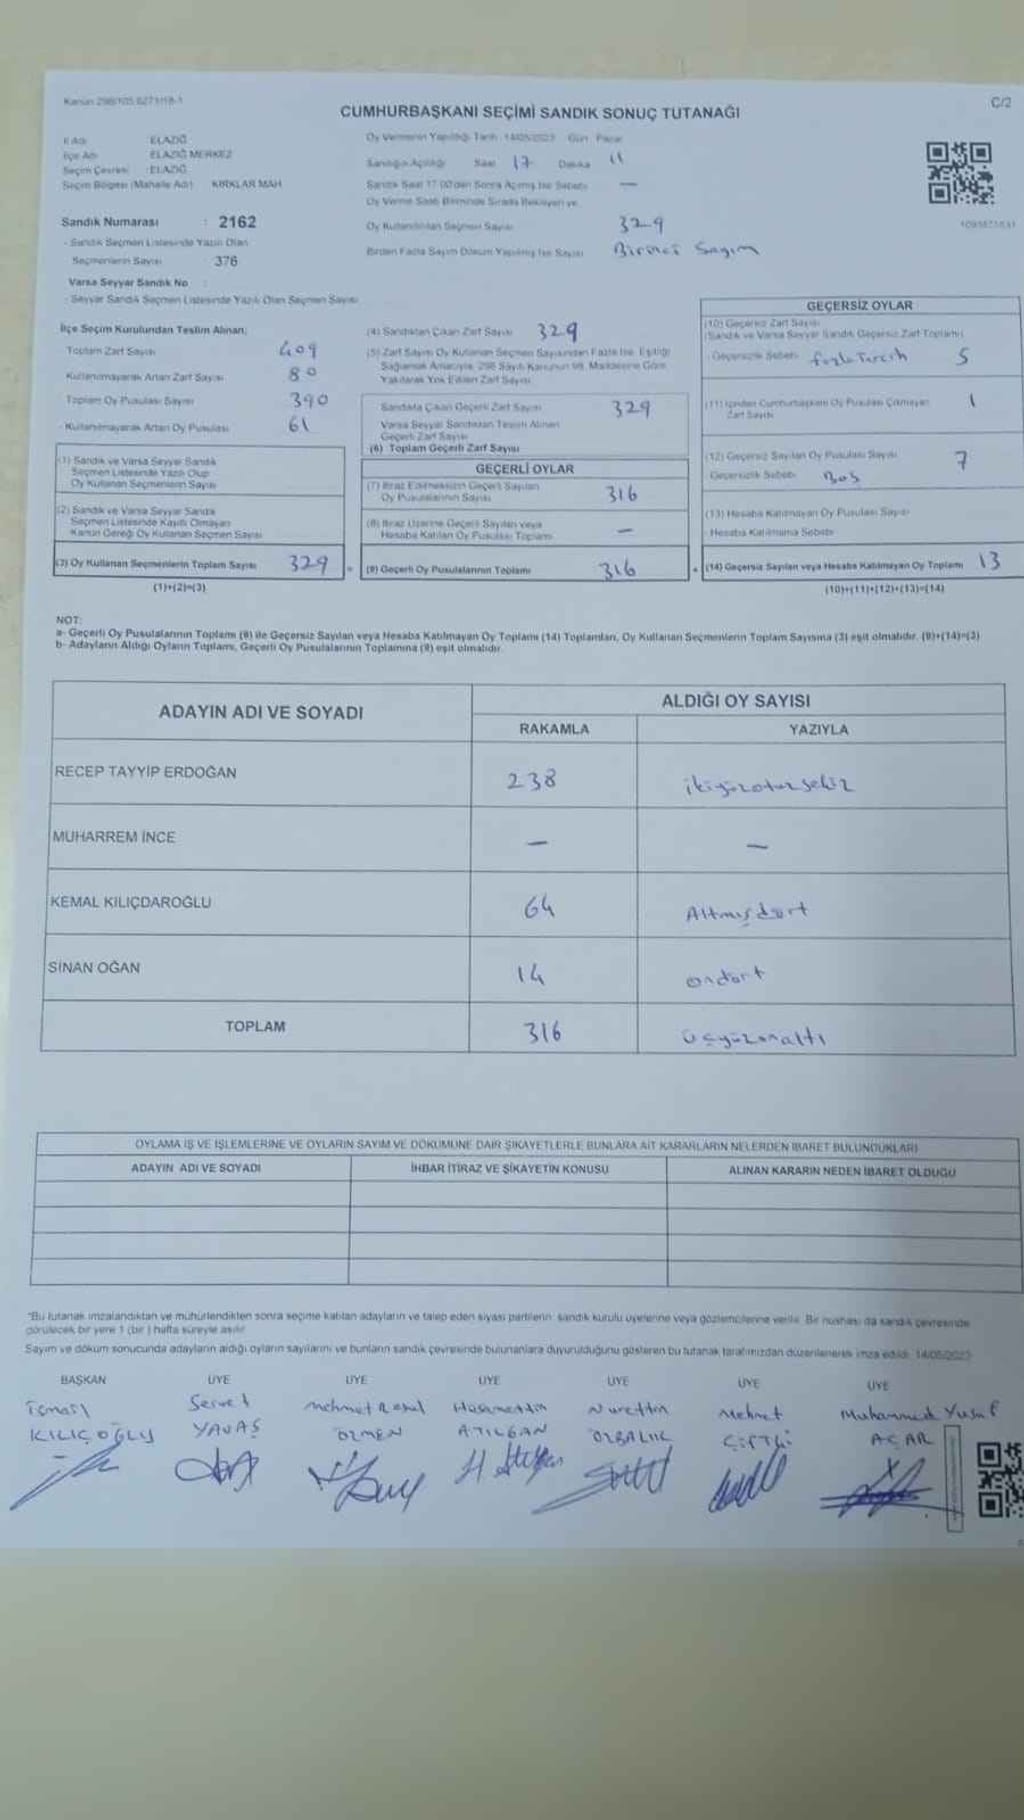 Kanun 298/105,6271/18-1
C/2
CUMHURBAŞKANI SEÇİMİ SANDIK SONUÇ TUTANAĞI
İl Adı ELAZIĞ
İlçe Adı ELAZIĞ MERKEZ
Seçim Çevresi ELAZIĞ
Seçim Bölgesi (Mahalle Adı) KIRKLAR MAH
Sandık Numarası : 2162
- Sandık Seçmen Listesinde Yazılı Olan
Seçmenlerin Sayısı 376
Varsa Seyyar Sandık No :
- Seyyar Sandık Seçmen Listesinde Yazılı Olan Seçmen Sayısı
Oy Vermenin Yapıldığı Tarih 14/05/2023 Gün Pazar
Sandığın Açılışı Saat 17 Dakika 11
Sandık Saat 17.00'den Sonra Açılmış İse Sebebi —
Oy Verme Saati Bitiminde Sırada Bekleyen ve
Oy Kullandırılan Seçmen Sayısı 329
Birden Fazla Sayım Döküm Yapılmış İse Sayısı Birinci Sayım
İlçe Seçim Kurulundan Teslim Alınan;
Toplam Zarf Sayısı 409
Kullanılmayarak Artan Zarf Sayısı 80
Toplam Oy Pusulası Sayısı 390
- Kullanılmayarak Artan Oy Pusulası 61
(1) Sandık ve Varsa Seyyar Sandık
Seçmen Listesinde Yazılı Olup
Oy Kullanan Seçmenlerin Sayısı
(2) Sandık ve Varsa Seyyar Sandık
Seçmen Listesinde Kayıtlı Olmayan
Kanun Gereği Oy Kullanan Seçmen Sayısı
(3) Oy Kullanan Seçmenlerin Toplam Sayısı 329
(1)+(2)=(3)
(4) Sandıktan Çıkan Zarf Sayısı 329
(5) Zarf Sayısı Oy Kullanan Seçmen Sayısından Fazla İse, Eşitliği
Sağlamak Amacıyla, 298 Sayılı Kanunun 98. Maddesine Göre
Yakılarak Yok Edilen Zarf Sayısı
Sandıkta Çıkan Geçerli Zarf Sayısı 329
Varsa Seyyar Sandıktan Teslim Alınan
Geçerli Zarf Sayısı
(6) Toplam Geçerli Zarf Sayısı
GEÇERLİ OYLAR
(7) İtiraz Edilmeksizin Geçerli Sayılan
Oy Pusulalarının Sayısı 316
(8) İtiraz Üzerine Geçerli Sayılan veya
Hesaba Katılan Oy Pusulası Toplamı —
(9) Geçerli Oy Pusulalarının Toplamı 316
GEÇERSİZ OYLAR
(10) Geçersiz Zarf Sayısı
(Sandık ve Varsa Seyyar Sandık Geçersiz Zarf Toplamı)
Geçersizlik Sebebi fazla Tercih 5
(11) İçinden Cumhurbaşkanı Oy Pusulası Çıkmayan
Zarf Sayısı 1
(12) Geçersiz Sayılan Oy Pusulası Sayısı 7
Geçersizlik Sebebi Boş
(13) Hesaba Katılmayan Oy Pusulası Sayısı
Hesaba Katılmama Sebebi
(14) Geçersiz Sayılan veya Hesaba Katılmayan Oy Toplamı 13
(10)+(11)+(12)+(13)=(14)
NOT:
a- Geçerli Oy Pusulalarının Toplamı (9) ile Geçersiz Sayılan veya Hesaba Katılmayan Oy Toplamı (14) Toplamları, Oy Kullanan Seçmenlerin Toplam Sayısına (3) eşit olmalıdır. (9)+(14)=(3)
b- Adayların Aldığı Oyların Toplamı, Geçerli Oy Pusulalarının Toplamına (9) eşit olmalıdır.
ADAYIN ADI VE SOYADI
ALDIĞI OY SAYISI
RAKAMLA YAZIYLA
RECEP TAYYİP ERDOĞAN 238 ikiyüzotuzsekiz
MUHARREM İNCE — —
KEMAL KILIÇDAROĞLU 64 Altmışdört
SİNAN OĞAN 14 ondört
TOPLAM 316 üçyüzonaltı
OYLAMA İŞ VE İŞLEMLERİNE VE OYLARIN SAYIM VE DÖKÜMÜNE DAİR ŞİKAYETLERLE BUNLARA AİT KARARLARIN NELERDEN İBARET BULUNDUKLARI
ADAYIN ADI VE SOYADI İHBAR İTİRAZ VE ŞİKAYETİN KONUSU ALINAN KARARIN NEDEN İBARET OLDUĞU
*Bu tutanak imzalandıktan ve mühürlendikten sonra seçime katılan adayların ve talep eden siyasi partilerin sandık kurulu üyelerine veya gözlemcilerine verilir. Bir nüshası da sandık çevresinde
görülecek bir yere 1 (bir ) hafta süreyle asılır.
Sayım ve döküm sonucunda adayların aldığı oyların sayılarını ve bunların sandık çevresinde bulunanlara duyurulduğunu gösteren bu tutanak tarafımızdan düzenlenerek imza edildi. 14/05/2023
BAŞKAN ÜYE ÜYE ÜYE ÜYE ÜYE ÜYE
İsmail Servet Mehmet Resul Hüsamettin Nurettin Mehmet Muhammed Yusuf
KILIÇOĞLU YAVAŞ ÖZMEN ATILGAN ÖZBALIK ÇİFTÇİ ACAR